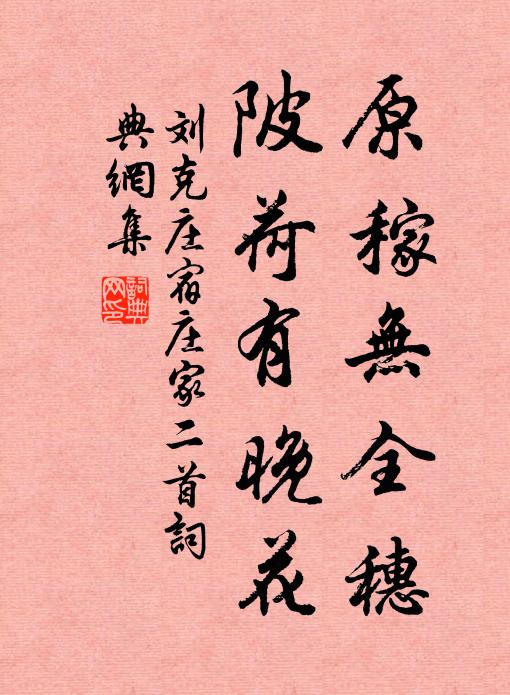 原稼無全穗
陂荷有晚花
刘克庄宿庄家二首詞
典網集
詞典
网印